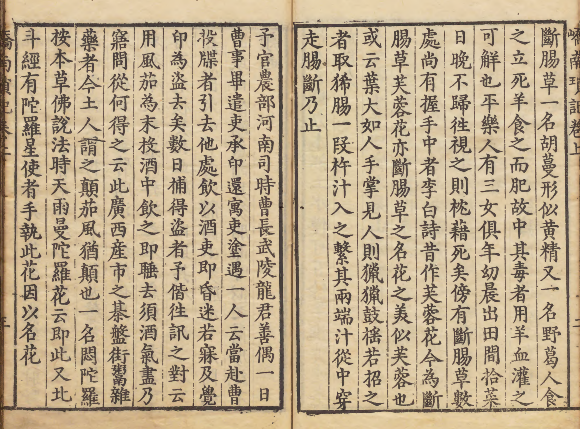 嶠南瑣記卷上
斷腸草一名胡蔓形似黄精又一名野葛人食
之立死羊食之而肥故中其毒者用羊血灌之
可解也平樂人有三女俱年幼晨出田間拾菜
日晚不歸徃視之則枕藉死矣傍有斷腸草數
處尚有握手中者李白詩昔作芙蓉花今為斷
腸草芙蓉花亦斷腸草之名花之美似芙蓉也
或云葉大如人手掌見人則獵獵鼓摇若招之
者取狶腸一段杵汁入之繫其兩端汁從中穿
走腸斷乃止
予官農部河南司時曹長武陵龍君善偶一日
曹事畢遣吏承印還寓吏塗遇一人云當赴曹
投牒者引去他處飲以酒吏即昏迷若寐及覺
印為盜去矣數日捕得盜者予偕徃訊之對云
用風茄為末投酒中飲之即睡去須酒氣盡乃
寤問從何得之云此廣西産市之棊盤街鬻雜
藥者今土人謂之顛茄風猶顛也一名悶陀羅
按本草佛説法時天雨曼陀羅花云即此又北
斗經有陀羅星使者手執此花因以名花